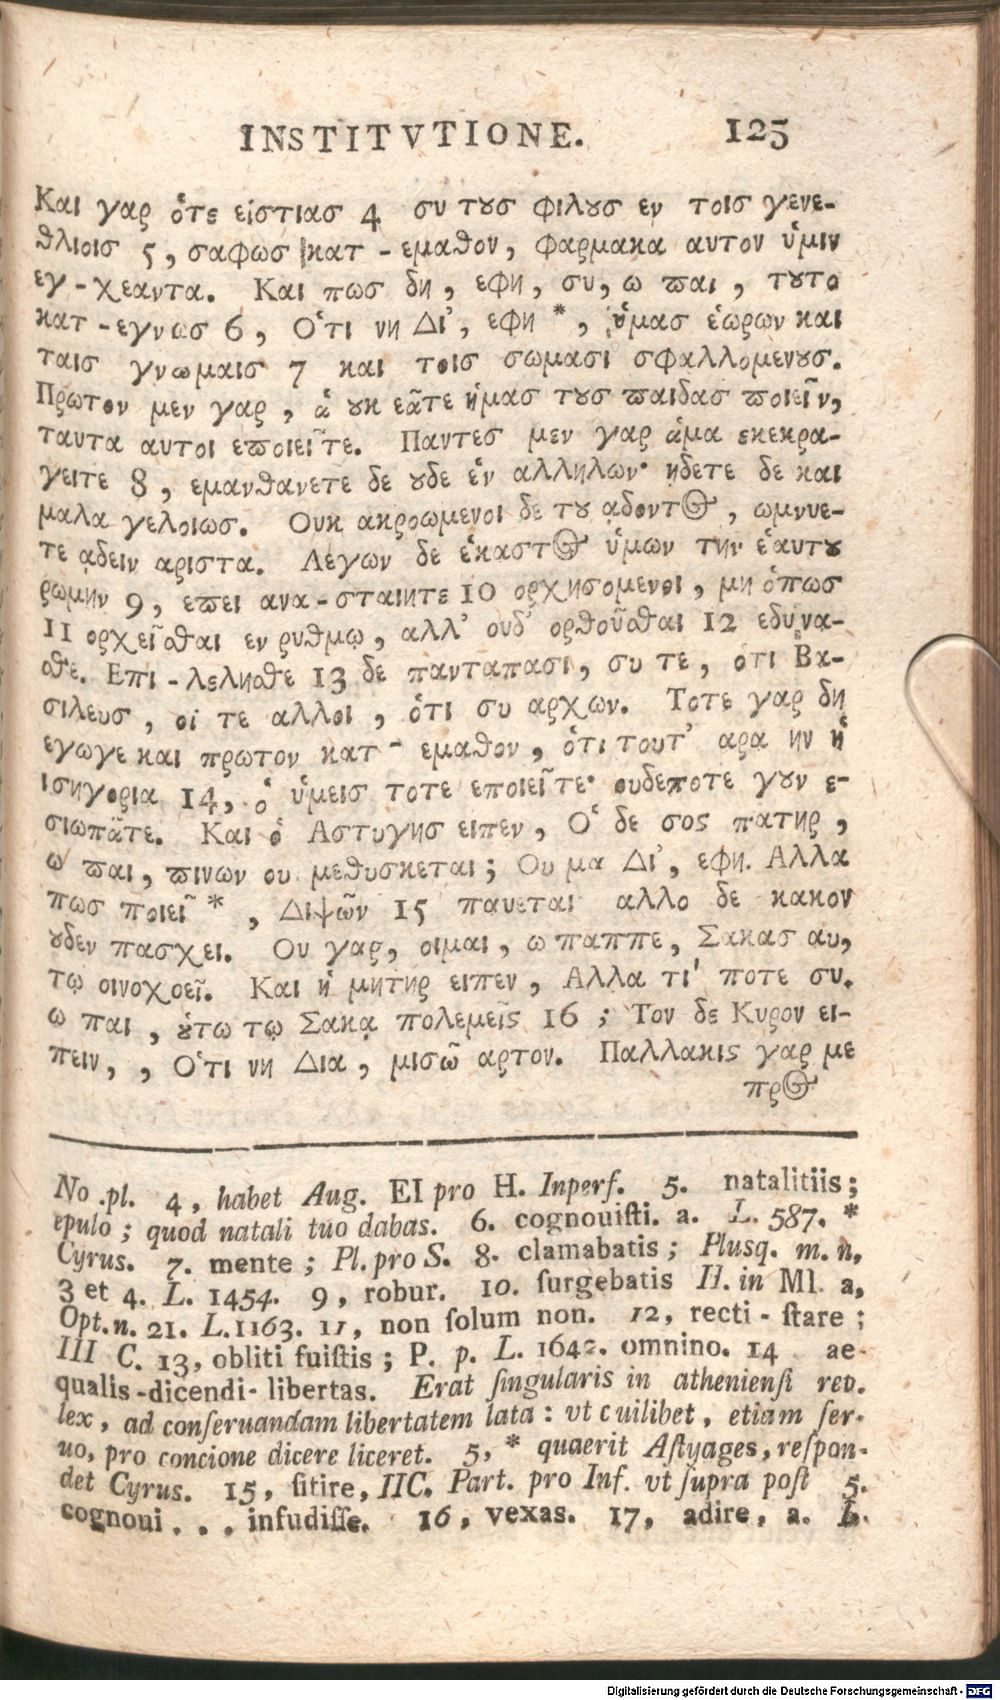 INSTITVTIONE. 125
Και γαρ ὁτε εἱστιασ 4 συ τȣσ φιλȣσ εν τοισ γενε-
θλιοισ 5, σαφωσ κατ-εμαθον, φαρμακα αυτον ὑμιν
εγ-χεαντα. Και πωσ δη, εφη, συ, ω παι, τȣτο
κατ-εγνωσ 6, Ὁτι νη Δι', εφη *, ὑμασ ἑωρων και
ταισ γνωμαισ 7 και τοισ σωμασι σφαλλομενȣσ.
Πρωτον μεν γαρ, ἁ ȣκ εᾶτε ἡμασ τȣσ παιδασ ποιεῖν,
ταυτα αυτοι εποιεῖτε. Παντεσ μεν γαρ ἁμα εκεκρα-
γειτε 8, εμανθανετε δε ȣδε ἑν αλληλων· ῃδετε δε και
μαλα γελοιωσ. Ουκ ακροωμενοι δε τȣ ᾳδοντος, ωμνυε-
τε ᾳδειν αριστα. Λεγων δε ἑκαστος ὑμων την ἑαυτȣ
ρωμην 9, επει ανα-σταιητε 10 ορχησομενοι, μη ὁπως
11 ορχεῖσθαι εν ρυθμῳ, αλλ' ουδ' ορθοῦσθαι 12 εδυνα-
σθε. Επι-λελησθε 13 δε πανταπασι, συ τε, οτι Βα-
σιλευσ, οἱ τε αλλοι, ὁτι συ αρχων. Τοτε γαρ δη
εγωγε και πρωτον κατ-εμαθον, ὁτι τουτ' αρα ην ἡ
ισηγορια 14, ὁ ὑμεισ τοτε εποιεῖτε· ουδεποτε γουν ε-
σιωπᾶτε. Και ὁ Αστυγησ ειπεν, Ὁ δε σος πατηρ,
ω παι, πινων ου μεθυσκεται; Ου μα Δι', εφη. Αλλα
πωσ ποιεῖ *, Διψῶν 15 παυεται αλλο δε κακον
ȣδεν πασχει. Ου γαρ, οιμαι, ω παππε, Σακασ αυ,
τῳ οινοχοεῖ. Και ἡ μητηρ ειπεν, Αλλα τι' ποτε συ.
ω παι, ȣτω τῳ Σακᾳ πολεμεῖς 16; Τον δε Κυρον ει-
πειν, , Ὁτι νη Δια, μισῶ αρτον. Παλλακις γαρ με
προς
No .pl. 4, habet Aug. EI pro H. Inperf. 5. natalitiis;
epulo; quod natali tuo dabas. 6. cognouiſti. a. L. 587. *
Cyrus. 7. mente; Pl. pro S. 8. clamabatis; Plusq. m. n.
3 et 4. L. 1454. 9, robur. 10. ſurgebatis H. in MI. a,
Opt. n. 21. L. 1163. 11, non ſolum non. 12, recti-ſtare;
III C. 13, obliti fuiſtis; P. p. L. omnino. 14 ae-
qualis-dicendi-libertas. Erat ſingularis in athenienſi rep.
lex, ad conſeruandam libertatem lata: vt cuilibet, etiam ſer-
uo, pro concione dicere liceret. 5, * quaerit Aſtyages, reſpon-
det Cyrus. 15, ſitire, IIC. Part. pro Inf. vt ſupra poſt 5.
cognoui . . . infudiſſe. 16, vexas. 17, adire, a. L.
Digitalisierung gefördert durch die Deutsche Forschungsgemeinschaft - DFG